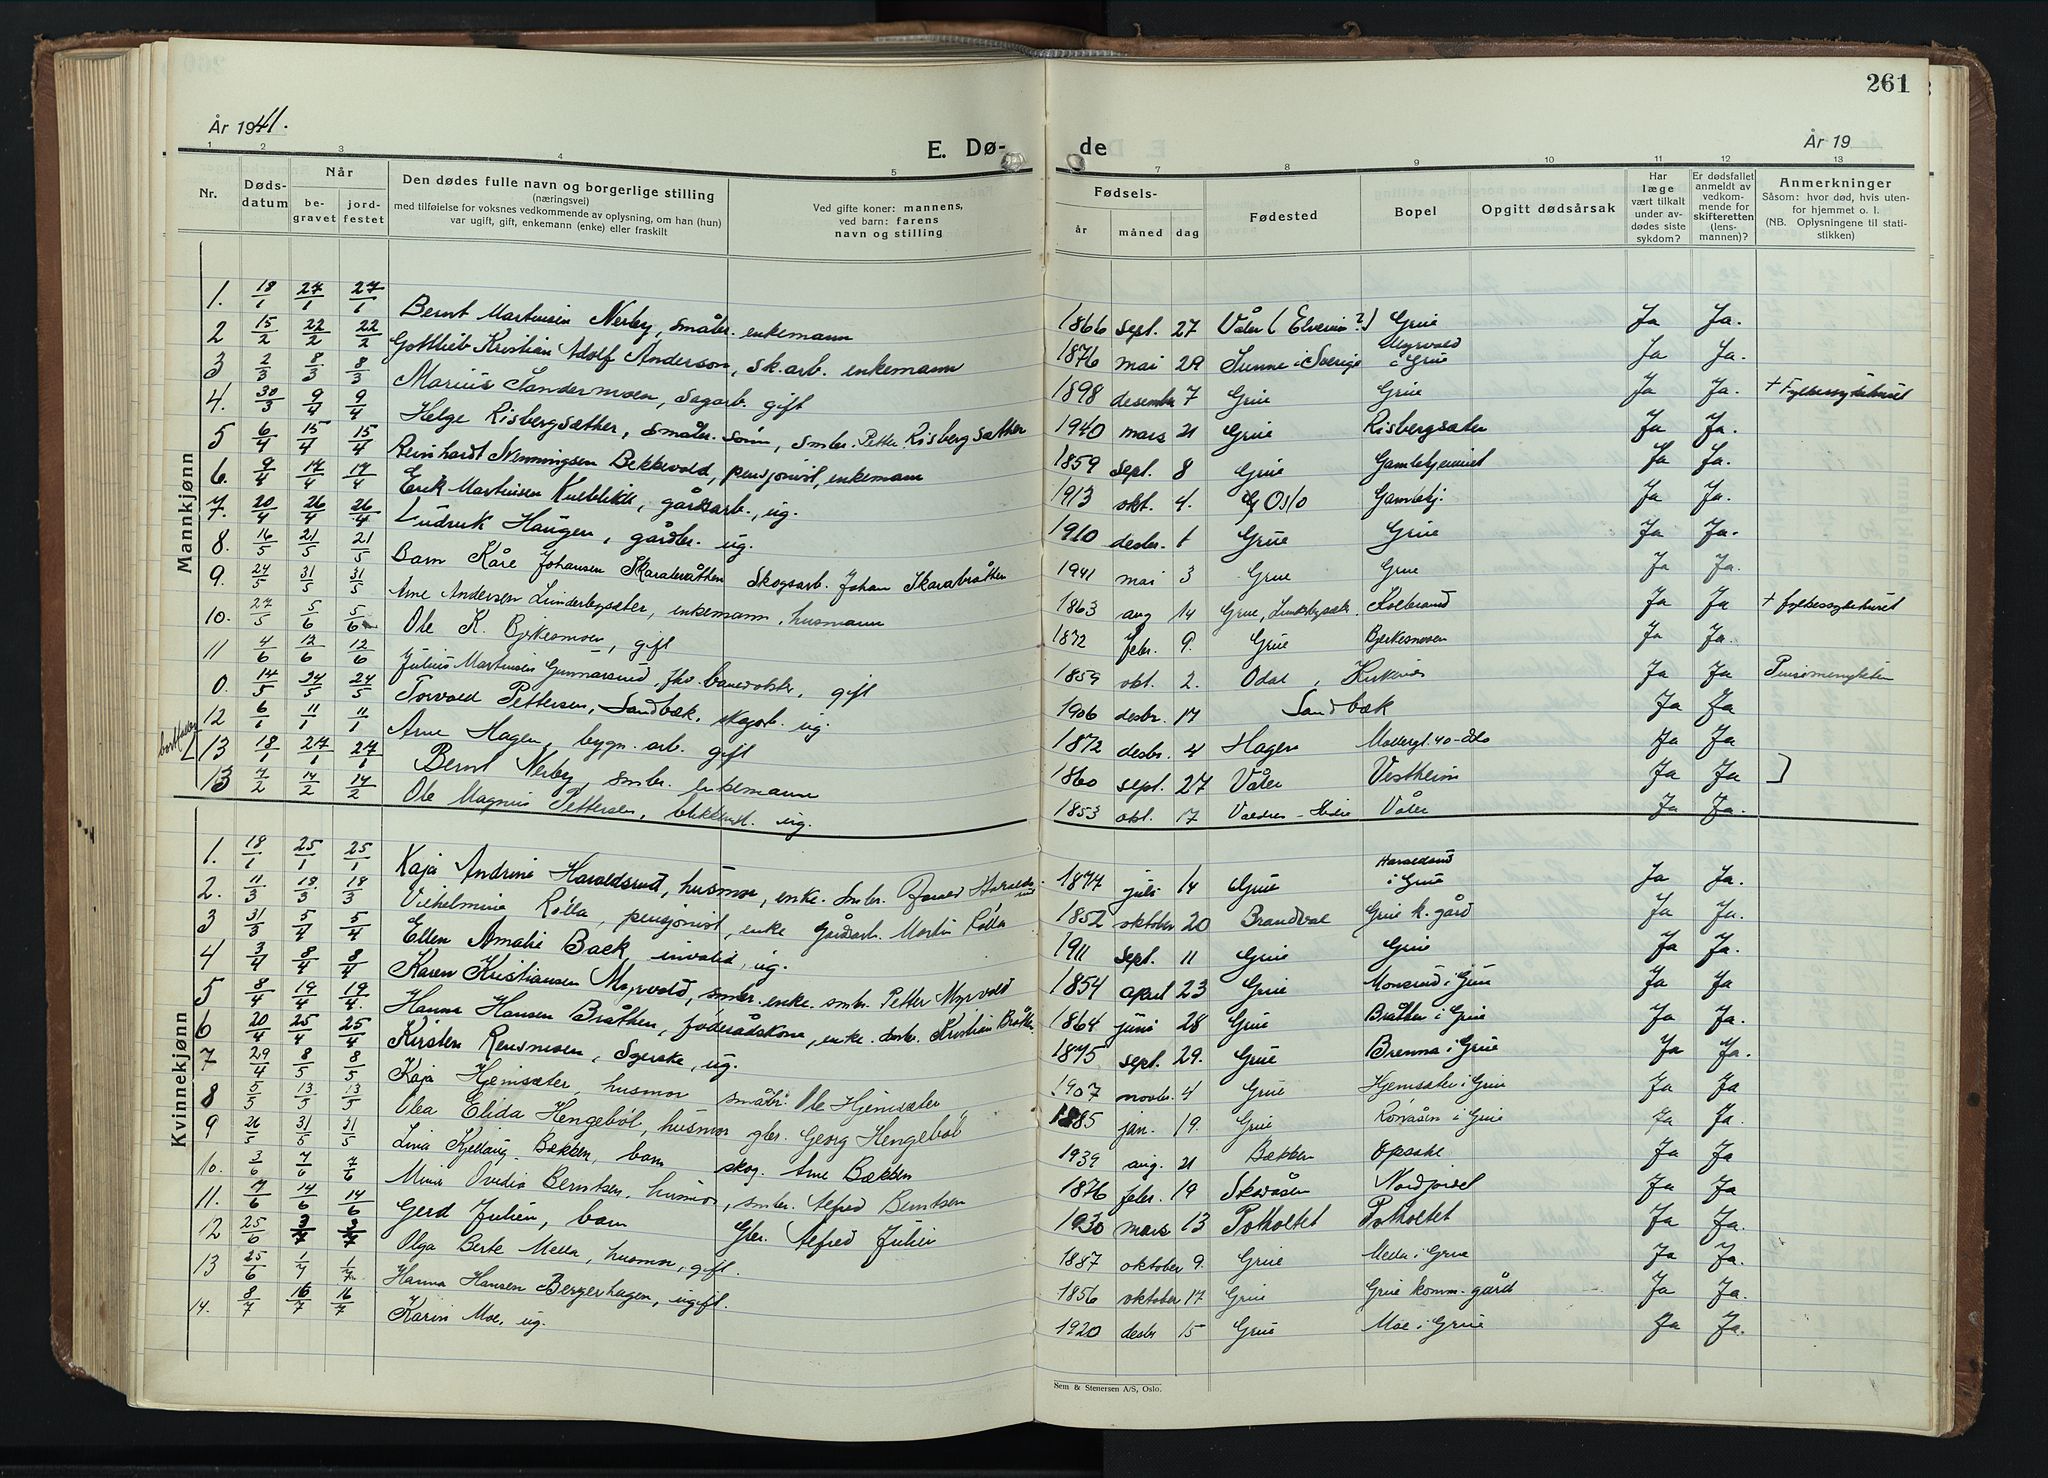 261
År 1941.
E. Dø-
de
År 19
1 2 3 4 5 7 8 9 10 11 12 13
Nr.
Døds-
datum
Når
be-
gravet
jord-
festet
Den dødes fulle navn og borgerlige stilling
(næringsvei)
med tilføielse for voksnes vedkommende av oplysning, om han (hun)
var ugift, gift, enkemann (enke) eller fraskilt
Ved gifte koner: mannens,
ved barn: farens
navn og stilling
Fødsels-
år måned dag
Fødested
Bopel
Opgitt dødsårsak
Har
læge
vært tilkalt
under av-
dødes siste
sykdom?
Er dødsfallet
anmeldt av
vedkom-
mende for
skifteretten
(lens-
mannen)?
Anmerkninger
Såsom: hvor død, hvis uten-
for hjemmet o. l.
(NB. Oplysningene til stati-
stikken)
Mannkjønn
1. 18/1 27/1 27/1 Bernt Martinsen Nerby, småbr. enkemann 1866 sept. 27 Våler (Elverum?) Grue Ja Ja.
2 15/2 22/2 22/2 Gottlieb Kristian Adolf Anderson, sk.arb. enkemann 1876 mai 29 Sunne i Sverige Myrvold i Grue Ja Ja.
3 2/3 8/3 8/3 Marius Sandermoen, sagarb. gift 1898 desember 7 Grue Grue Ja Ja. + Fylkessykehuset
4. 30/3 9/4 9/4 Helge Risbergsæther, småbr. sønn, smbr. Petter Risbergsæther 1940 mars 21 Grue Risbergsæter Ja Ja.
5 6/4 15/4 15/4 Reinhardt Nemmingsen Bekkevold, pensjonist, enkemann 1859 sept. 8 Grue Gamlehjemmet Ja Ja.
6. 9/4 17/4 17/4 Erik Martinsen, gårdsarb., ug. 1913 okt. 4. Oslo Gamlehj. Ja Ja.
7. 20/4 26/4 26/4 Ludvik Haugen, gårdbr. ug. 1910 desbr. 1 Grue Grue Ja Ja.
8. 16/5 21/5 21/5 Barn Kåre Johansen Skarabråthen Skogsarb. Johan Skarabråthen 1941 mai 3 Grue Grue Ja Ja.
9. 24/5 31/5 31/5 Arne Andersen Lunderbysæter, enkemann, husmann 1863 aug 14 Grue, Lunderbysæter Kolbrend Ja Ja + fylkessykehuset
10. 27/5 5/6 5/6 Ole K. Bjerkesmoen, gift 1872 febr. 9. Grue Bjerkesmoen Ja Ja.
11 4/6 12/6 12/6 Julius Martinsen Gunnarsrud, fhv. banevokter, gift 1859 okt. 2. Odal, Kirkenær Ja Ja
0. 14/5 24/5 24/5 Torvald Pettersen, Sandbæk, skogarb. ug. 1906 desbr. 17 Sandbæk Ja Ja
12 6/1 11/1 11/1 Arne Hagen, bygn. arb. gift 1872 desbr. 4 Hagen Møllergt. 40-Oslo Ja Ja
bortfaller
13 18/1 27/1 27/1 Bernt Nerby, smbr. enkemann 1860 sept. 27 Våler Vestheim Ja Ja
13 7/2 14/2 14/2 Ole Magnus Pettersen, blikkensl. ug. 1853 okt. 17 Valdres - Hidre Våler Ja Ja.
Kvinnekjønn
1. 18/1 25/1 25/1 Kaja Andrine Haraldsrud, husmor, enke. smbr. Haraldsrud 1877 juli 14 Grue Haraldsrud i Grue Ja Ja.
2. 11/3 18/3 18/3 Vilhelmine Rølla, pensjonist, enke Gårdsarb. Martin Rølla 1852 oktober 20 Brandval Grue k. gård Ja Ja.
3 31/3 5/4 5/4 Ellen Amalie Baek, invalid, ug. 1911 sept. 11 Grue Grue Ja Ja.
4 3/4 8/4 8/4 Karen Kristiansen Myrvold, smbr. enke. smbr. Petter Myrvold 1854 april 23 Grue Monsrud i Grue Ja Ja
5 8/4 19/4 19/4 Hanna Hansen Bråthen, føderådskone, enke. smbr. Kristian Bråthen 1864 juni 28 Grue Bråthen i Grue Ja Ja.
6 20/4 25/4 25/4 Kirsten Rensmoen, Syerske, ug. 1875 sept. 29. Grue Brenna i Grue Ja Ja.
7 29/4 8/5 8/5 Kaja Hjemsæter, husmor småbr. Ole Hjemsæter 1907 novbr. 4 Grue Hjemsæter i Grue Ja Ja
8 5/5 13/5 13/5 Olea Elida Hengebøl, husmor gbr. Georg Hengebøl 1885 jan. 19. Grue Rotnåsen i Grue Ja Ja.
9 26/5 31/5 31/5 Liva Kjellaug Bækken, barn skog. Arne Bækken 1939 aug. 21 Bækken Opsake Ja Ja
10. 3/6 7/6 7/6 Mina Ovidia Berntsen, husmor, smbr. Alfred Berntsen 1876 febr. 19 Skasåsen Nordjordet Ja Ja
11. 7/6 14/6 14/6 Gerd Julien, barn Gbr. Alfred Julien 1930 mars 13 Potholtet Potholtet Ja Ja.
12 25/6 3/7 3/7 Olga Berte Mella, husmor, gift. 1887 oktober 9. Grue Mella i Grue Ja Ja.
13 25/6 1/7 1/7 Hanna Hansen Bergerhagen, ugift. 1856 oktober 17 Grue Grue komm. gård Ja Ja.
14. 8/7 16/7 16/7 Karin Moe, ug. 1920 desbr 15 Grue Moe i Grue Ja Ja.
Sem & Stenersen A/S, Oslo.